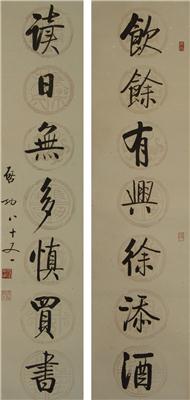 飲餘有興徐添酒
讀日無多慎買書
啓功八十又一